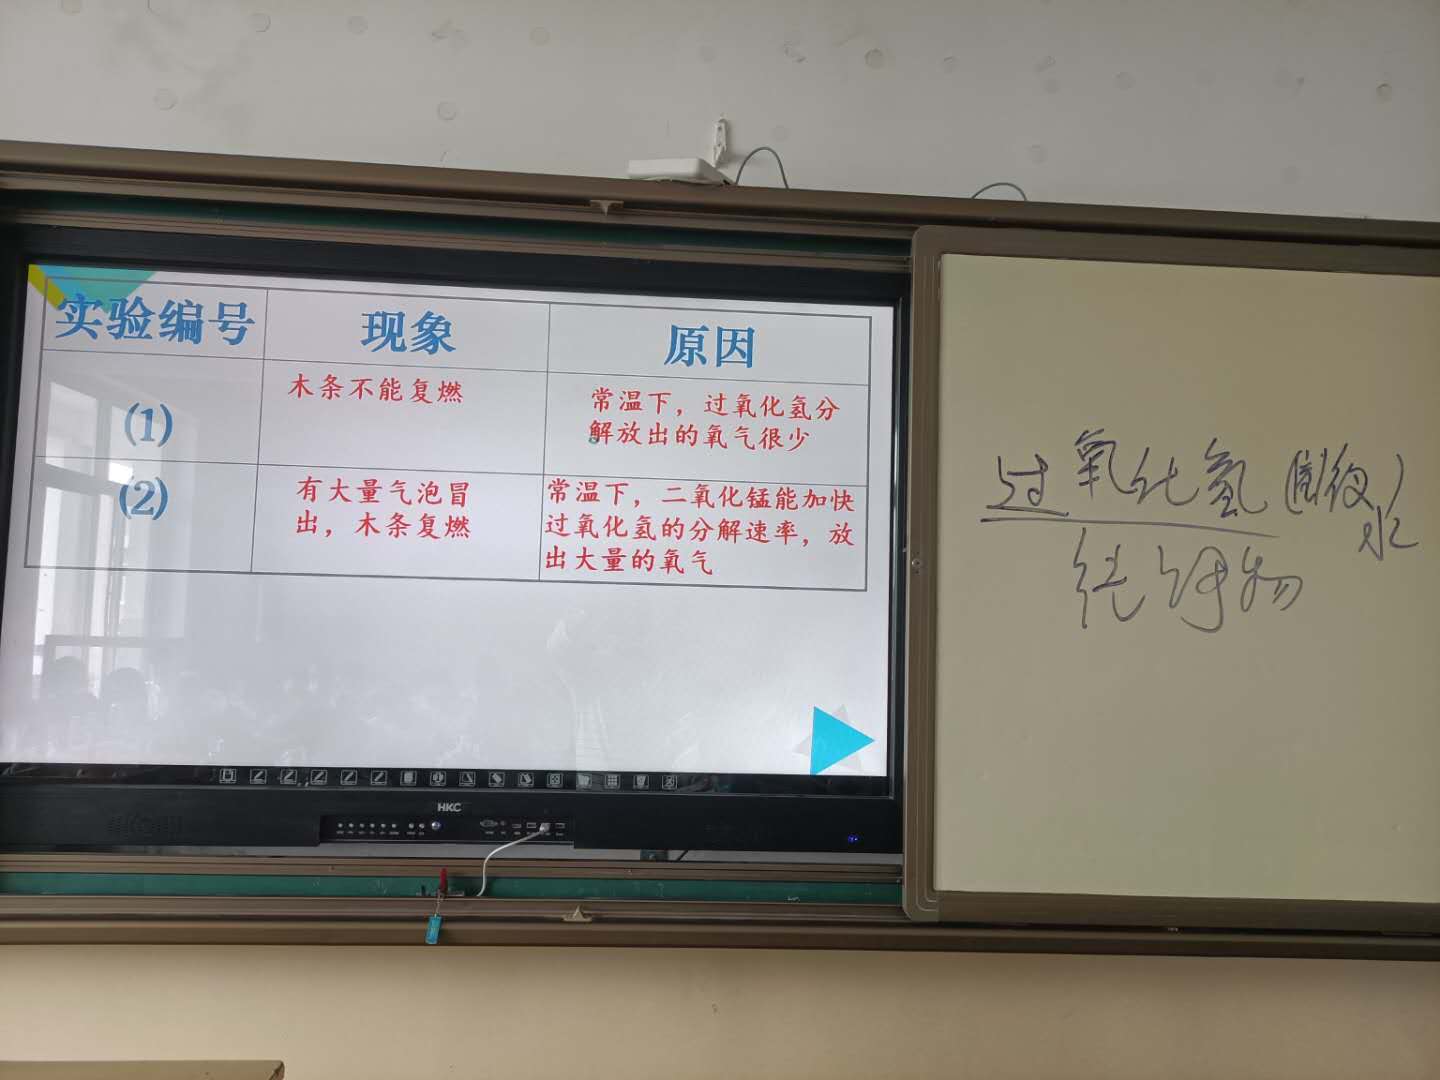 实验编号
现象
原因
(1)
木条不能复燃
常温下，过氧化氢分
解放出的氧气很少
(2)
有大量气泡冒
出，木条复燃
常温下，二氧化锰能加快
过氧化氢的分解速率，放
出大量的氧气
HKC
过氧化氢
水
纯净物